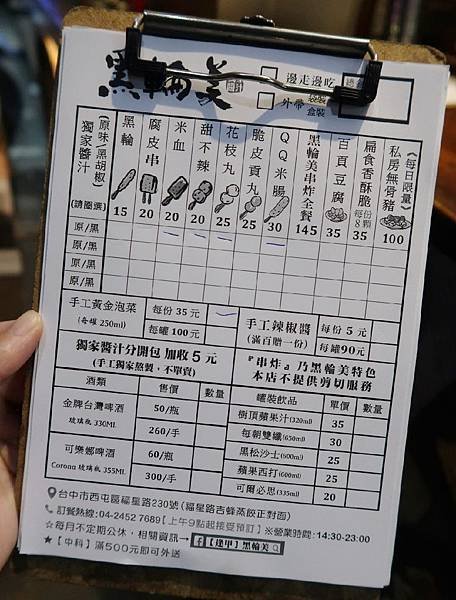 黑輪美
邊走邊吃
外帶 袋裝 盒裝
獨家醬汁
(原味/黑胡椒)
(請圈選)
黑輪
15
腐皮串
20
米血
20
甜不辣
20
花枝丸
25
脆皮貢丸
25
QQ米腸
30
黑輪美串炸全餐
145
百頁豆腐
35
扁食香酥脆
每份8顆
35
私房無骨豬
《每日限量》
100
原/黑
原/黑
原/黑
原/黑
手工黃金泡菜
(每罐 250ml)
每份 35 元
每罐 100 元
手工辣椒醬
(滿百贈一份)
每份 5 元
每罐 90 元
獨家醬汁分開包 加收 5 元
(手工獨家熬製,不單賣)
『串炸』乃黑輪美特色
本店不提供剪切服務
酒類 售價 數量
金牌台灣啤酒
玻璃瓶 330Ml.
50/瓶
260/手
可樂娜啤酒
Corona 玻璃瓶 355Ml.
60/瓶
300/手
罐裝飲品 單價 數量
樹頂蘋果汁(320ml) 35
每朝雙纖(650ml) 30
黑松沙士(600ml) 25
蘋果西打(600ml) 25
可爾必思(335ml) 20
台中市西屯區福星路230號 (福星路吉蜂蒸餃正對面)
訂餐熱線: 04-2452 7689【上午9點起接受預訂】※營業時間: 14:30-23:00
☆每月不定期公休,相關資訊→ f【逢甲】黑輪美
★【中科】滿500元即可外送